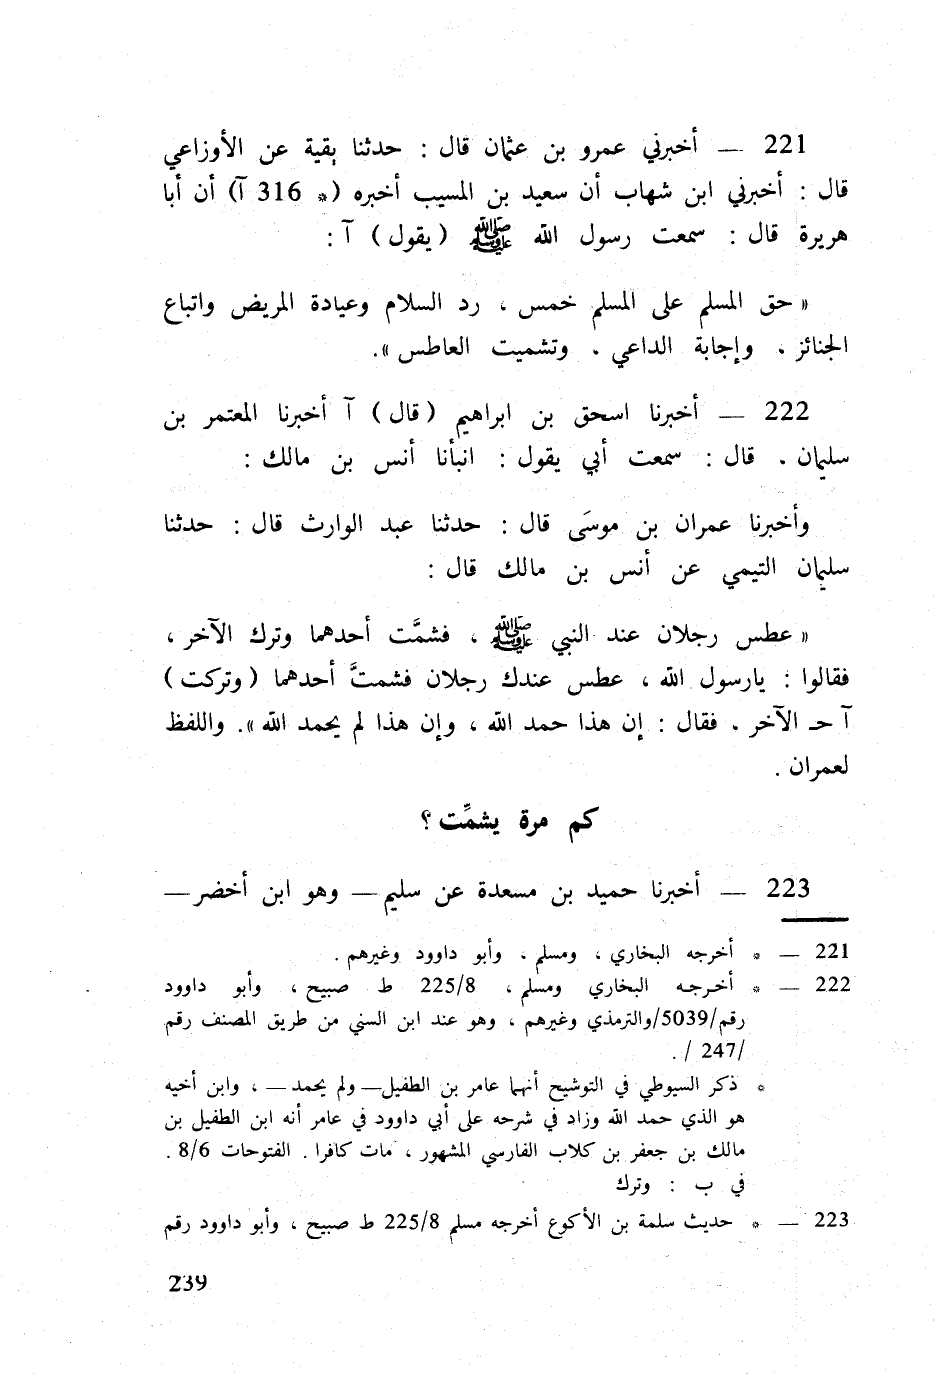 221 — أخبرني عمرو بن عثمان قال : حدثنا بقية عن الأوزاعي
قال : أخبرني ابن شهاب أن سعيد بن المسيب أخبره (* 316 آ) أن أبا
هريرة قال : سمعت رسول الله ﷺ (يقول) آ :
« حق المسلم على المسلم خمس ، رد السلام وعيادة المريض واتباع
الجنائز . وإجابة الداعي . وتشميت العاطس ».
222 — أخبرنا اسحق بن ابراهيم (قال) آ أخبرنا المعتمر بن
سليمان . قال : سمعت أبي يقول : انبأنا أنس بن مالك :
وأخبرنا عمران بن موسَى قال : حدثنا عبد الوارث قال : حدثنا
سليمان التيمي عن أنس بن مالك قال :
« عطس رجلان عند النبي ﷺ ، فشمَّت أحدهما وترك الآخر ،
فقالوا : يارسول الله ، عطس عندك رجلان فشمتَّ أحدهما (وتركت)
آ حـ الآخر . فقال : إن هذا حمد الله ، وإن هذا لم يحمد الله ». واللفظ
لعمران .
كم مرة يشمِّت ؟
223 — أخبرنا حميد بن مسعدة عن سليم — وهو ابن أخضر —
221 — * أخرجه البخاري ، ومسلم ، وأبو داوود وغيرهم .
222 — * أخرجه البخاري ومسلم ، 225/8 ط صبيح ، وأبو داوود
رقم/5039/والترمذي وغيرهم ، وهو عند ابن السني من طريق المصنف رقم
/247 / .
* ذكر السيوطي في التوشيح أنهما عامر بن الطفيل — ولم يحمد — ، وابن أخيه
هو الذي حمد الله وزاد في شرحه على أبي داوود في عامر أنه ابن الطفيل بن
مالك بن جعفر بن كلاب الفارسي المشهور ، مات كافرا . الفتوحات 8/6 .
في ب : وترك
223 — * حديث سلمة بن الأكوع أخرجه مسلم 225/8 ط صبيح ، وأبو داوود رقم
239